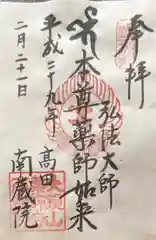 奉拝
弘法大師
本尊薬師如来
平成二十九年
二月二十一日
高田
南蔵院